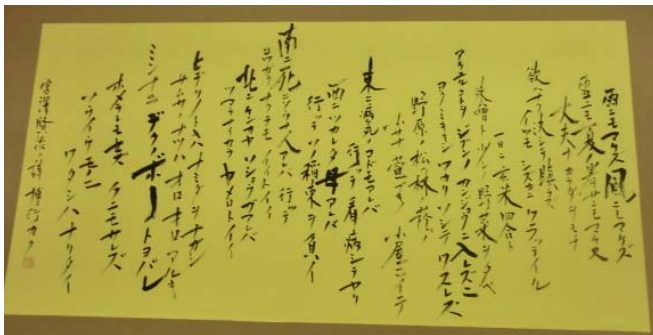 雨ニモマケズ風ニモマケズ
雪ニモ夏ノ暑サニモマケヌ
丈夫ナカラダヲモチ
欲ハナク決シテ瞋ラズ
イツモシズカニワラッテイル
一日ニ玄米四合ト
味噌ト少シノ野菜ヲタベ
アラユルコトヲジブンヲカンジョウニ入レズニ
ヨクミキキシワカリソシテワスレズ
野原ノ松ノ林ノ蔭ノ
小サナ萱ブキノ小屋ニイテ
東ニ病気ノコドモアレバ
行ッテ看病シテヤリ
西ニツカレタ母アレバ
行ッテソノ稲束ヲ負イ
南ニ死ニソウナ人アレバ行ッテ
コワガラナクテモイイトイイ
北ニケンカヤソショウガアレバ
ツマラナイカラヤメロトイイ
ヒデリノトキハナミダヲナガシ
サムサノナツハオロオロアルキ
ミンナニデクノボートヨバレ
ホメラレモセズクニモサレズ
ソウイウモノニ
ワタシハナリタイ
宮澤賢治の詩